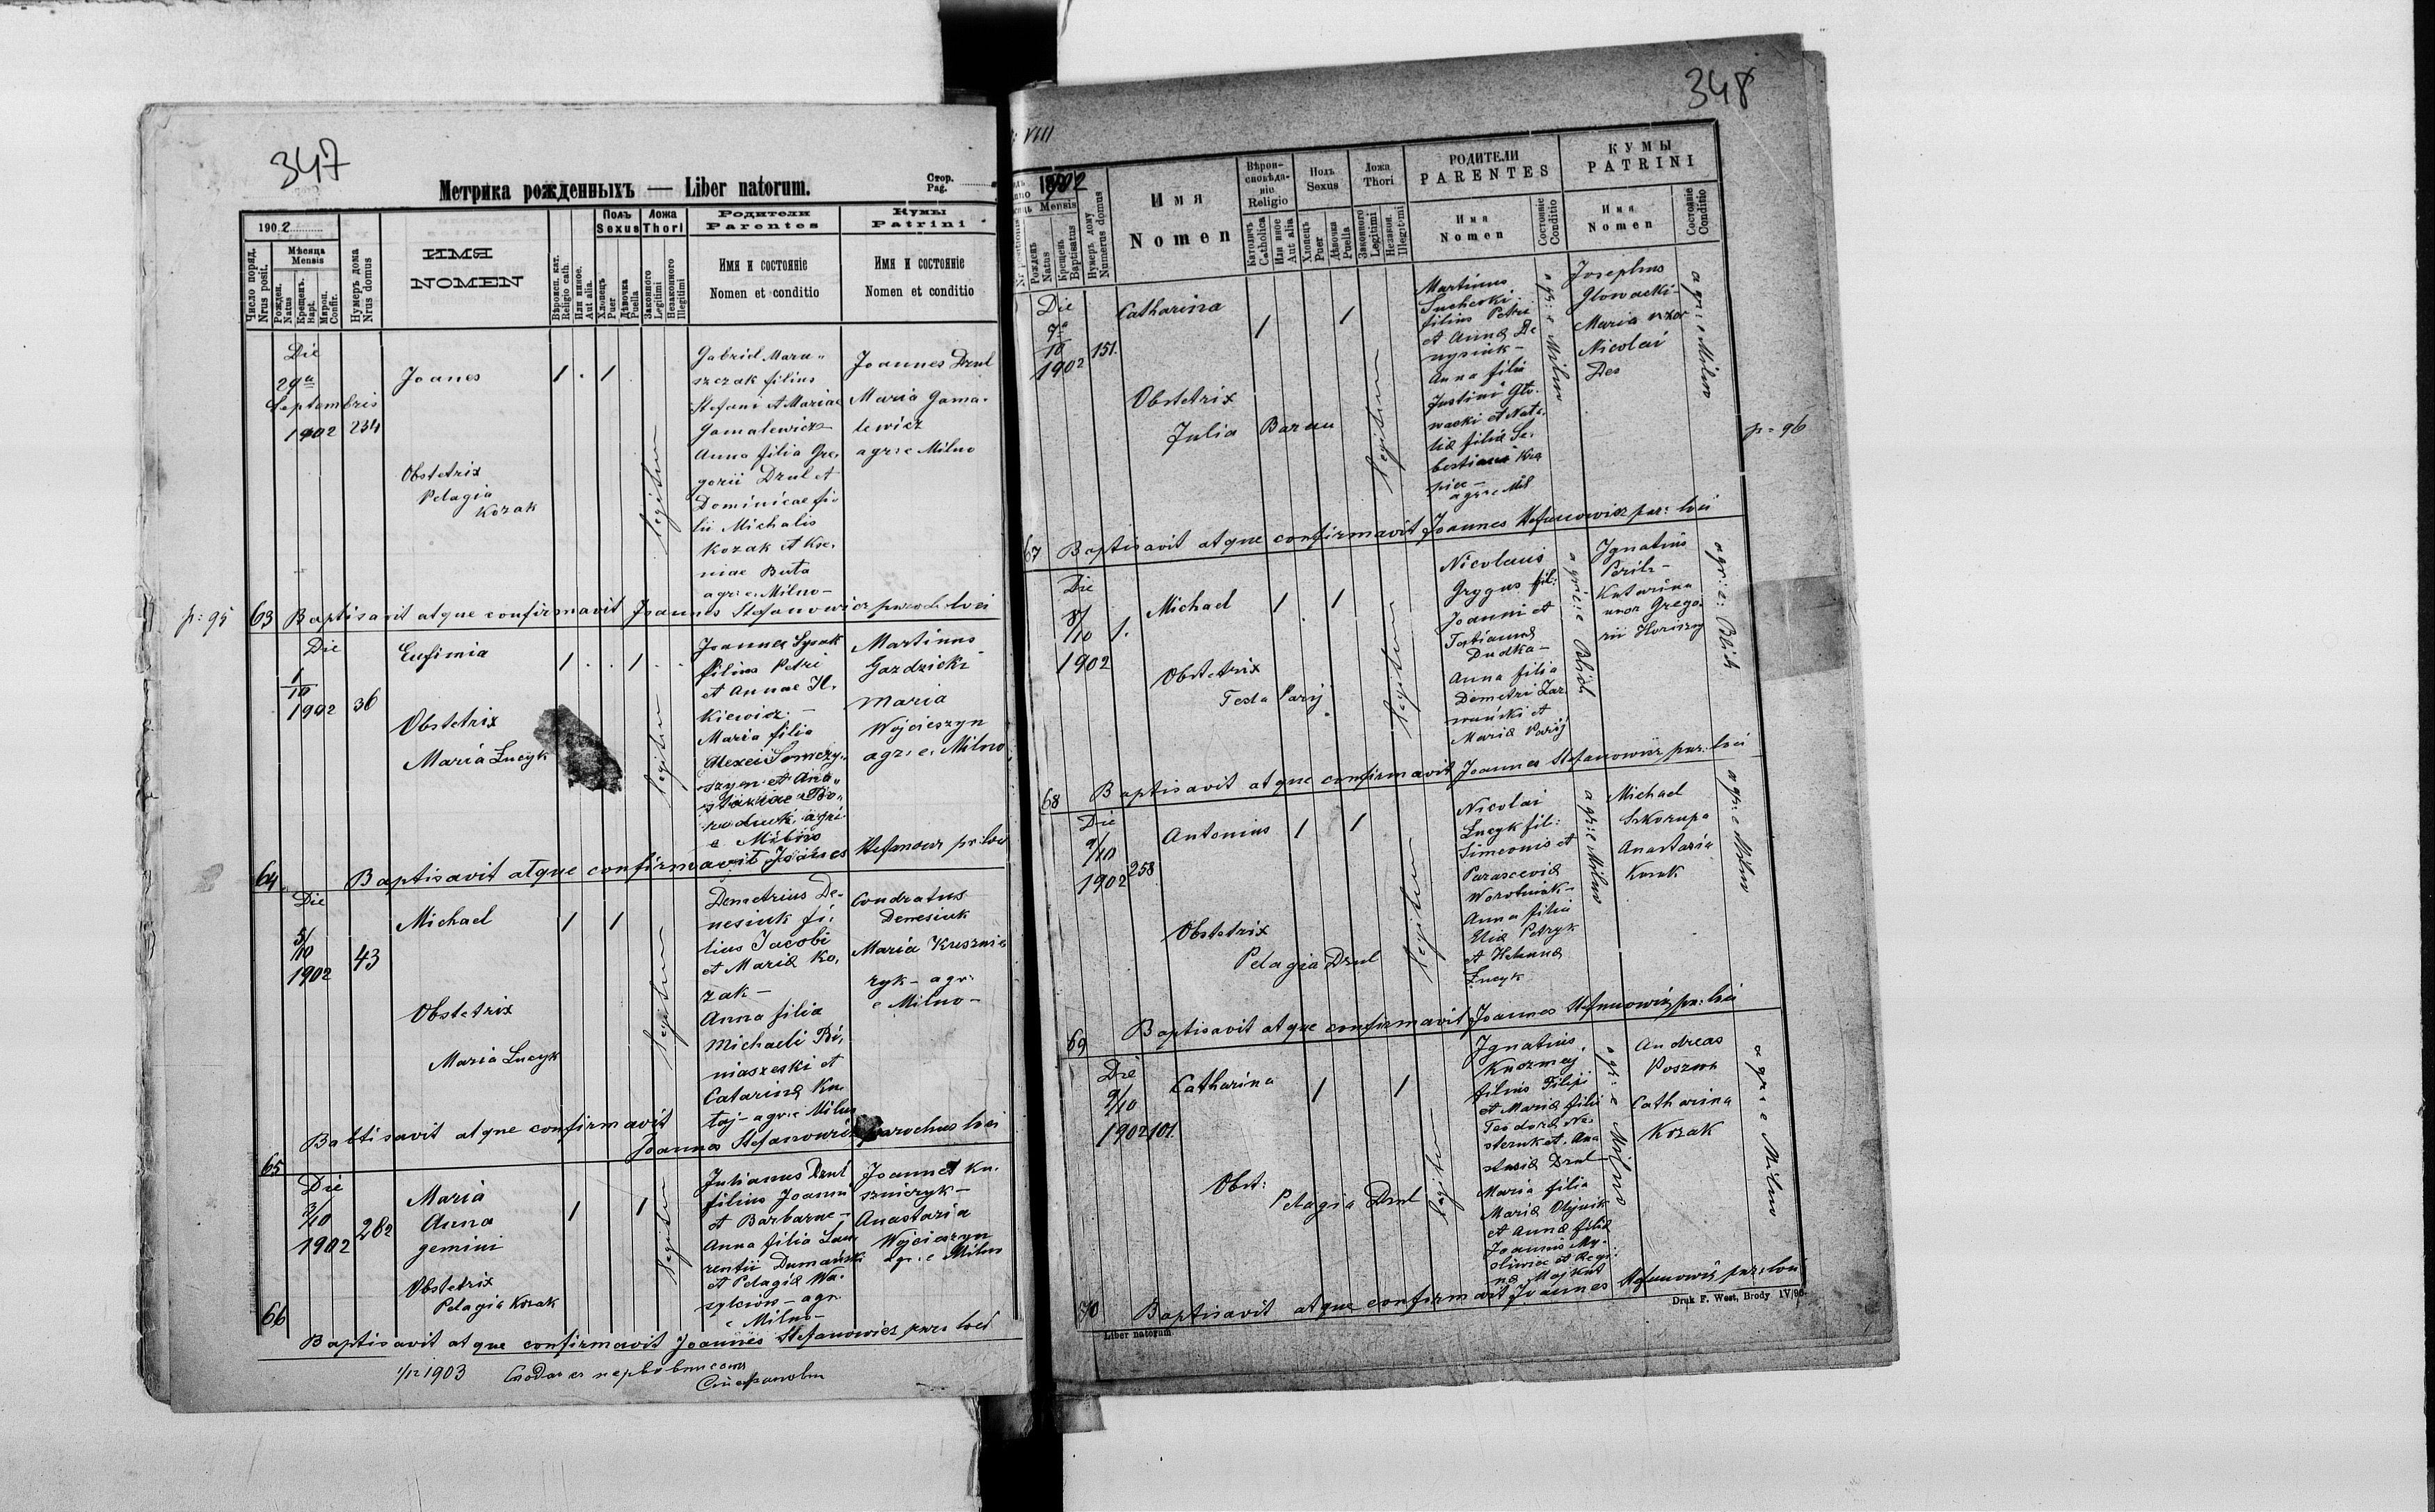 347
Метрика рожденныхъ — Liber natorum.
Стор.
Pag.
190 2
Число поряд.
Nrus posit.
Мѣсяца
Mensis
Рожден.
Natus
Крещенъ.
Bapt.
Мѵроп.
Confir.
Нумеръ дома
Nrus domus
ИМЯ
NOMEN
Вѣроисп. кат.
Religio cath.
Или иное.
Aut alia.
Полъ
Sexus
Хлопецъ
Puer
Дѣвочка
Puella
Ложа
Thori
Законного
Legitimi
Незаконного
Illegitimi
Родители
Parentes
Имя и состояніе
Nomen et conditio
Кумы
Patrini
Имя и состояніе
Nomen et conditio
Die
29a
Septembris
1902 234
Joanes
Obstetrix
Pelagia
Kozak
legitim
Gabriel Maru-
szczak filius
Stefani et Mariae
Gamalewicz
Anna filia Gre-
gorii Drul et
Dominicae fi-
lii Michalis
Kozak et Kse-
niae Buta
agr: e Milno -
Joannes Drul
Maria Gama-
lewicz
agr: e Milno
p: 95
63 Baptisavit atque confirmavit Joannes Stefanowicz paroch loci
Die
1/10
1902 36
Eufimia
Obstetrix
Maria Łucyk
legitim
Joannes Sysak
filius Petri
et Annae Il-
kiewicz -
Maria filia
Alexei
agri
e Milno
Martinus
Gazdzicki
Maria
Wojcieszyn
agr: e Milno
64 Baptisavit atque confirmavit Joannes Stefanowicz pr: loci
Die
5/10
1902 43
Michael
Obstetrix
Maria Łucyk
legitim
Demetrius De-
nesiuk fi-
lius Jacobi
et Mariæ Ko-
zak -
Anna filia
Michaeli Bi-
niaszeski et
Catarinæ Ku-
taj - agr: e Milno
Condratus
Denesiuk
Maria Kusznie
ryk - agr:
e Milno -
Babtisavit atque confirmavit
Joannes Stefanowicz parochus loci
65
Die
2/10
1902 282
Maria
Anna
gemini
Obstetrix
Pelagia Kozak
legitim
Julianus Drul
filius Joanni
et Barbarae -
Anna filia Lau-
rentii Dumański
et Pelagiæ Wa-
sylciów - agr.
e Milno -
Joannes Ku-
szniryk -
Anastazia
Wojcieszyn
agr: e Milno
66
Baptisavit atque confirmavit Joannes Stefanowicz par: loci
1/12 1903
348
VIII
1902
Mensis
Рожденъ
Natus
Крещенъ
Baptisatus
Нумеръ дому
Numerus domus
Имя
Nomen
Вѣроисповѣданіе
Religio
Католичъ
Catholica
Или иное
Aut alia
Полъ
Sexus
Хлопецъ
Puer
Дѣвочка
Puella
Ложа
Thori
Законного
Legitimi
Незакон.
Illegitimi
РОДИТЕЛИ
PARENTES
Имя
Nomen
Состояніе
Conditio
КУМЫ
PATRINI
Имя
Nomen
Состояніе
Conditio
Die
7a
10
1902
151.
Catharina
Obstetrix
Julia Baran
legitim
Martinus
Sucheski
filius Petri
et Annæ De
nysiuk -
Anna filia
Justini Gło-
wacki et Nata-
liæ filiæ Se-
bestiani
agr: e Mil
agr: e Milno
Josephus
Głowacki -
Maria uxor
Nicolai
Des
agr: e Milno
p: 96
67 Baptisavit atque confirmavit Joannes Stefanowicz par: loci
Die
8/10 1.
1902
Michael
Obstetrix
Tesla Paryj
legitim
Nicolaus
Grygus fil:
Joanni et
Tatiannæ
Dudka -
Anna filia
Demetri Zar
wański et
Mariæ Paryj
agr: e Blich
Ignatius
Peril -
Katarina
uxor Grego-
rii
agr: e: Blich
68 Baptisavit atque confirmavit Joannes Stefanowicz par: loci
Die
9/10
1902 258
Antonius
Obstetrix
Pelagia Drul
legitim
Nicolai
Łucyk fil:
Simeonis et
Parasceviæ
Worotniak -
Anna filia
Eliæ Petryk
et Helenæ
Łucyk
agr: e Milno
Michael
Szkorupa
Anastazia
Kozak
agr: e Milno
69 Baptisavit atque confirmavit Joannes Stefanowicz par: loci
Die
9/10
1902 101.
Catharina
Obst:
Pelagia Drul
legitim
Ignatius
Kuzmej
filius Filipi
et Mariæ filii
Teodoræ Ne-
steruk et Ana
stasiæ Drul -
Maria filia
Mariæ Olijnik
et Annæ filiæ
Joannis My-
śliwiec et Regi-
næ Majkut
agr: e Milno
Andreas
Poszwa
Catharina
Kozak
agr: e Milno
70 Baptisavit atque confirmavit Joannes Stefanowicz par: loci
Liber natorum
Druk F. West, Brody IV/96.